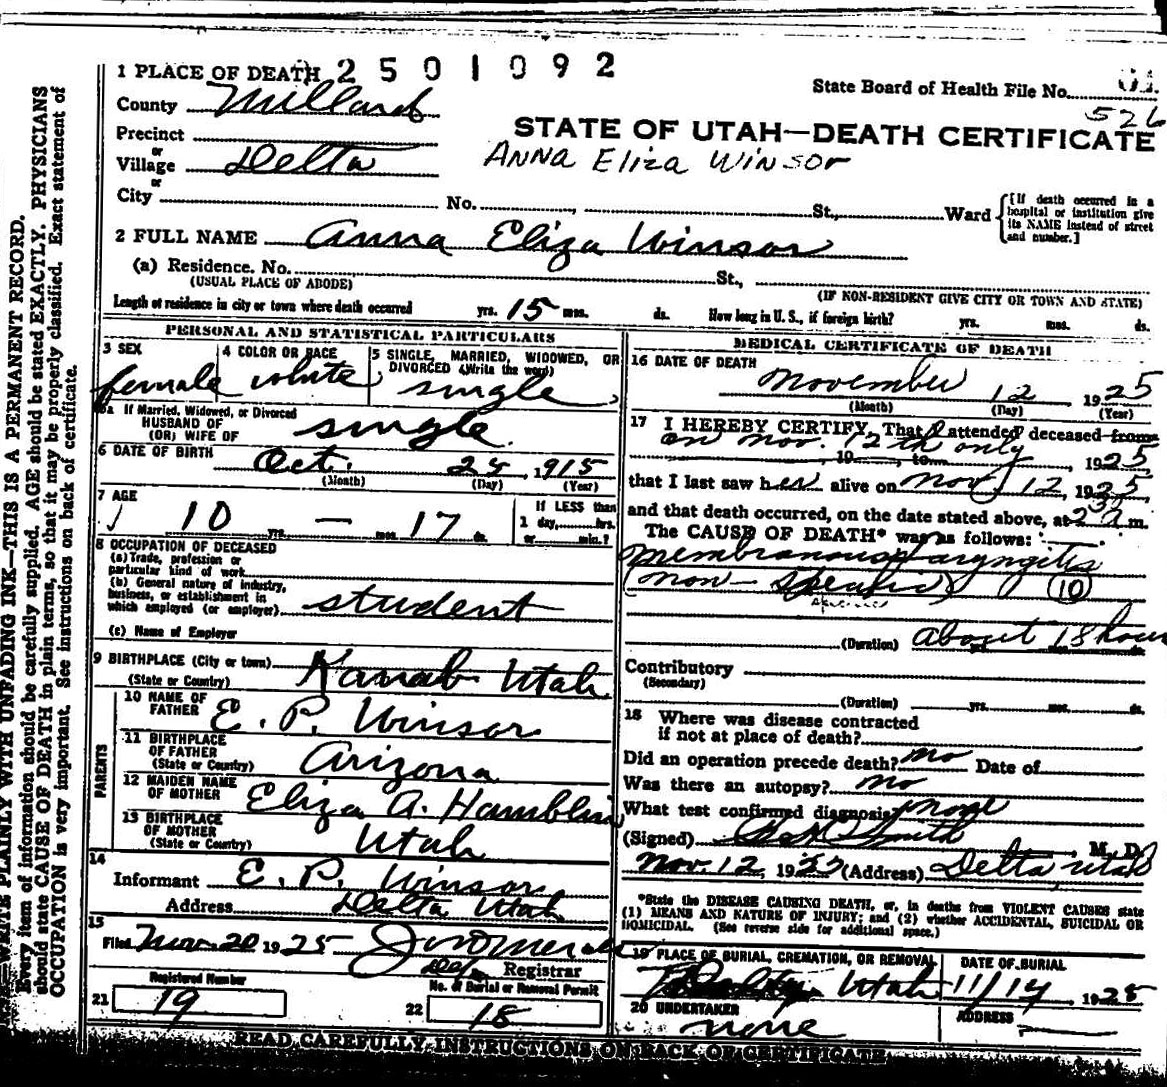 WRITE PLAINLY WITH UNFADING INK—THIS IS A PERMANENT RECORD.
Every item of information should be carefully supplied. AGE should be stated EXACTLY. PHYSICIANS
should state CAUSE OF DEATH in plain terms, so that it may be properly classified. Exact statement of
OCCUPATION is very important. See instructions on back of certificate.
1 PLACE OF DEATH 2501092
State Board of Health File No.
County Millard
526
STATE OF UTAH—DEATH CERTIFICATE
Precinct
or
Village Delta
ANNA Eliza WINSOR
or
City No. , St., Ward
[If death occurred in a hospital or institution give its NAME instead of street and number.]
2 FULL NAME Anna Eliza Winsor
(a) Residence. No. St.,
(USUAL PLACE OF ABODE)
(IF NON-RESIDENT GIVE CITY OR TOWN AND STATE)
Length of residence in city or town where death occurred yrs. 15 mos. ds. How long in U. S., if foreign birth? yrs. mos. ds.
PERSONAL AND STATISTICAL PARTICULARS
3 SEX
female
4 COLOR OR RACE
white
5 SINGLE, MARRIED, WIDOWED, OR
DIVORCED (Write the word)
single
5a If Married, Widowed, or Divorced
HUSBAND OF
(OR) WIFE OF single
6 DATE OF BIRTH Oct. , 1915
(Month) (Day) (Year)
7 AGE
10 yrs. — mos. 17 ds.
If LESS than
1 day, hrs.
or min.?
8 OCCUPATION OF DECEASED
(a) Trade, profession or
particular kind of work
(b) General nature of industry,
business, or establishment in
which employed (or employer) student
(c) Name of Employer
9 BIRTHPLACE (City or town) Kanab Utah
(State or Country)
PARENTS
10 NAME OF
FATHER E. P. Winsor
11 BIRTHPLACE
OF FATHER
(State or Country) Arizona
12 MAIDEN NAME
OF MOTHER Eliza A. Hamblin
13 BIRTHPLACE
OF MOTHER
(State or Country) Utah
14
Informant E. P. Winsor
Address Delta Utah
15
Filed 20 1925
Registrar
Registered Number
21 19
No. of Burial or Removal Permit
22 18
MEDICAL CERTIFICATE OF DEATH
16 DATE OF DEATH
November 12 1925
(Month) (Day) (Year)
17 I HEREBY CERTIFY, That I attended deceased from
on Nov. 12th only
, 19 , to , 1925
that I last saw her alive on Nov. 12, 1925
and that death occurred, on the date stated above, at m.
The CAUSE OF DEATH* was as follows:
membranous pharyngitis
(non- specific) (10)
(Duration) about 18 hours
Contributory
(Secondary)
(Duration) yrs. mos. ds.
18 Where was disease contracted
if not at place of death?
Did an operation precede death? no Date of
Was there an autopsy? no
What test confirmed diagnosis? none
(Signed) Smith, M. D.
Nov. 12, 19 (Address) Delta, Utah
*State the DISEASE CAUSING DEATH, or, in deaths from VIOLENT CAUSES state
(1) MEANS AND NATURE OF INJURY; and (2) whether ACCIDENTAL, SUICIDAL OR
HOMICIDAL. (See reverse side for additional space.)
19 PLACE OF BURIAL, CREMATION, OR REMOVAL
Delta, Utah
DATE OF BURIAL
11/14, 1925
20 UNDERTAKER
none
ADDRESS
READ CAREFULLY INSTRUCTIONS ON BACK OF CERTIFICATE